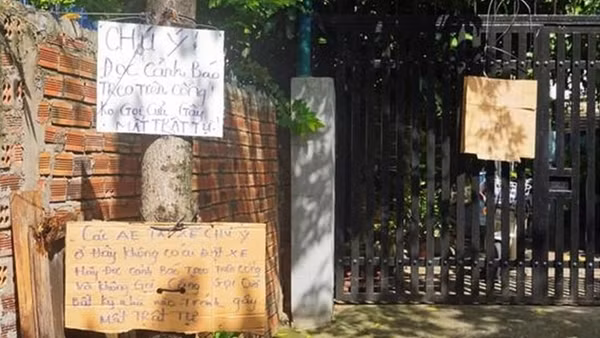 CHÚ Ý!
ĐỌC CẢNH BÁO
TREO TRÊN CỔNG!
KO GỌI CỬA GÂY
MẤT TRẬT TỰ!
CÁC AE TÀI XẾ CHÚ Ý
Ở ĐÂY KHÔNG CÓ AI ĐẶT XE
HÃY ĐỌC CẢNH BÁO TREO TRÊN CỔNG
VÀ KHÔNG GỌI CỔNG, GỌI CỬA
BẤT KỲ NHÀ NÀO TRÁNH GÂY
MẤT TRẬT TỰ